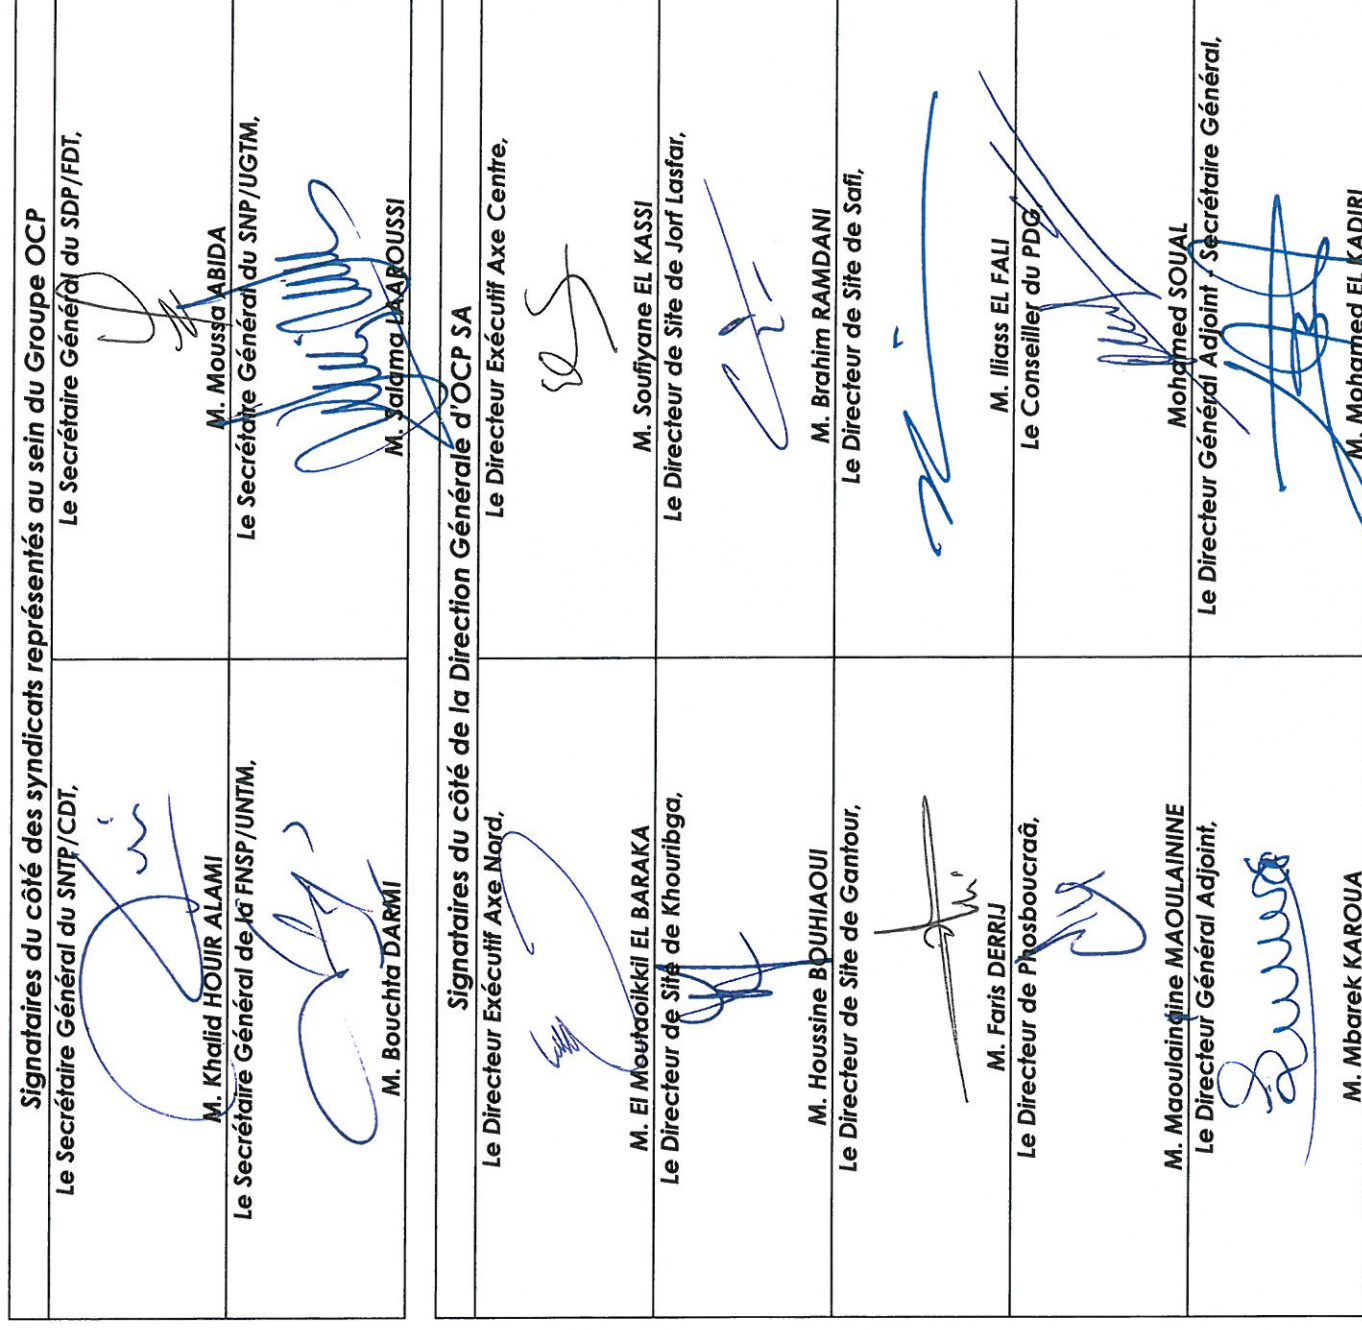 Signataires du côté des syndicats représentés au sein du Groupe OCP
Le Secrétaire Général du SNTP/CDT,
M. Khalid HOUIR ALAMI
Le Secrétaire Général du SDP/FDT,
M. Moussa ABIDA
Le Secrétaire Général de la FNSP/UNTM,
M. Bouchta DARMI
Le Secrétaire Général du SNP/UGTM,
M. Salama LAAROUSSI
Signataires du côté de la Direction Générale d'OCP SA
Le Directeur Exécutif Axe Nord,
M. El Moutaoikkil EL BARAKA
Le Directeur Exécutif Axe Centre,
M. Soufiyane EL KASSI
Le Directeur de Site de Khouribga,
M. Houssine BOUHIAOUI
Le Directeur de Site de Jorf Lasfar,
M. Brahim RAMDANI
Le Directeur de Site de Gantour,
M. Faris DERRIJ
Le Directeur de Site de Safi,
M. Iliass EL FALI
Le Directeur de Phosboucraâ,
M. Maoulainine MAOULAININE
Le Conseiller du PDG,
Mohamed SOUAL
Le Directeur Général Adjoint,
M. Mbarek KAROUA
Le Directeur Général Adjoint - Secrétaire Général,
M. Mohamed EL KADIRI